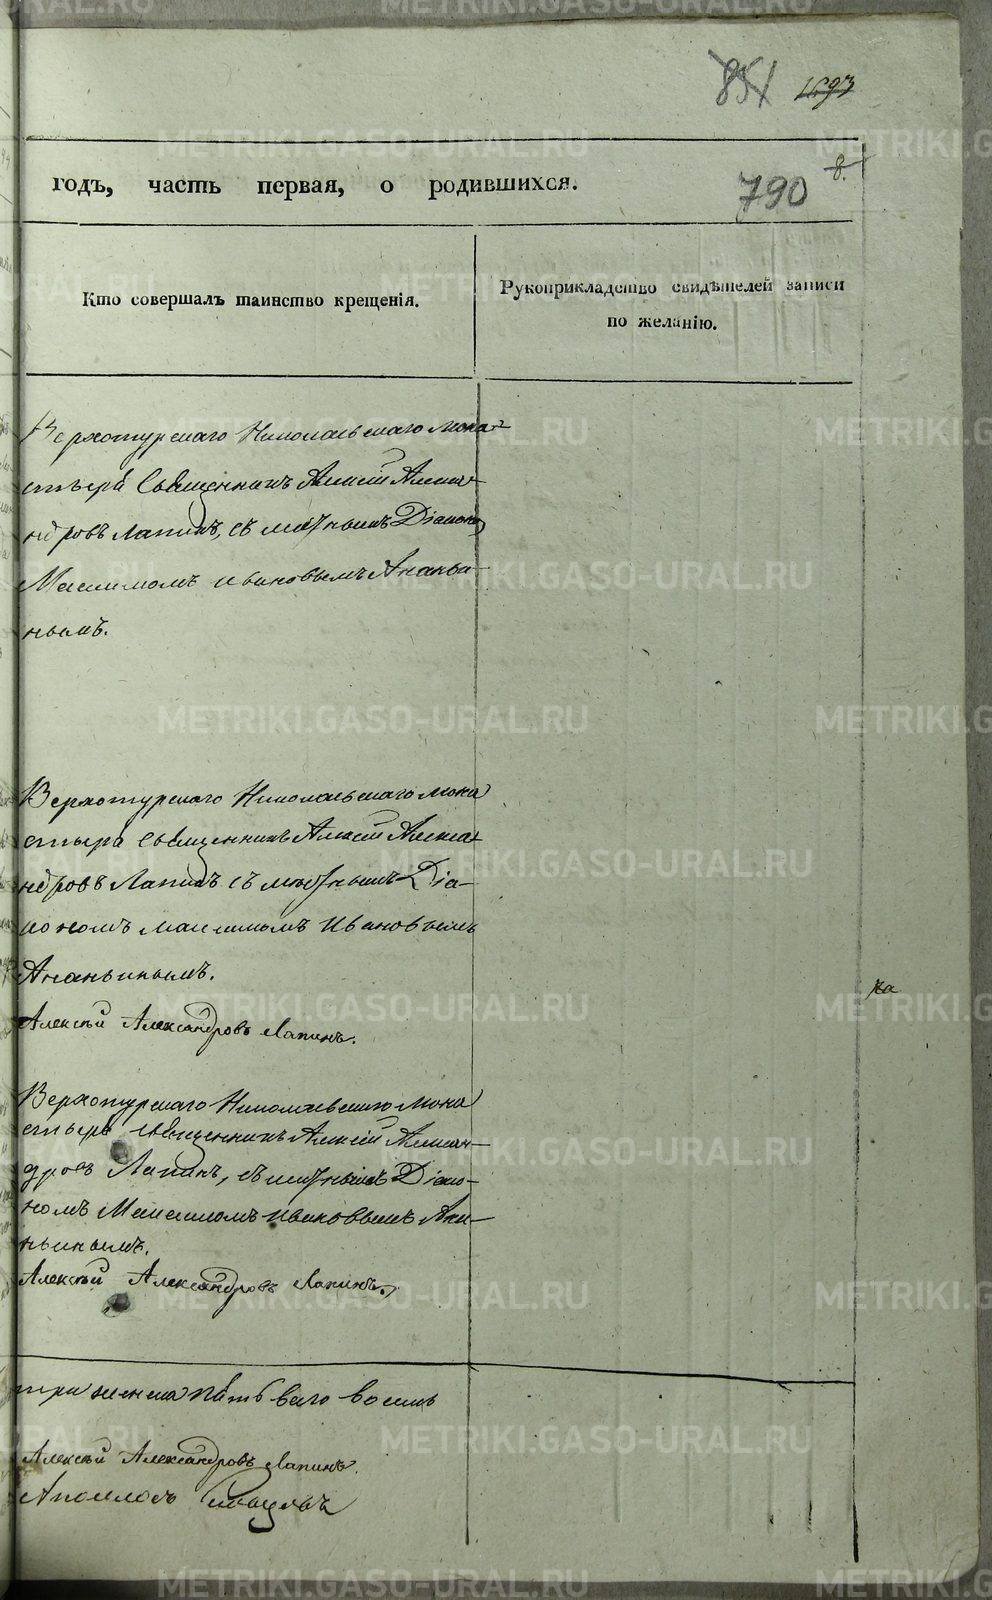 851 1693
годъ, часть первая, о родившихся.
8.
790
Кто совершалъ таинство крещенія.
Рукоприкладство свидѣтелей записи
по желанію.
Верхотурскаго Николаевскаго мона-
стыря Священникъ Алексій Алекса-
ндровъ Лапинъ, съ мѣстнымъ Діаконо
Максимомъ Ивановымъ Ананьи-
нымъ.
Верхотурскаго Николаевскаго мона
стыря Священникъ Алексій Алекса-
ндровъ Лапинъ съ мѣстнымъ Діа-
кономъ Максимомъ Ивановымъ
Ананьинымъ.
Алексѣй Александровъ Лапинъ.
Верхотурскаго Николаевскаго Мона
стыря Священникъ Алексій Алексан-
дровъ Лапинъ, съ мѣстнымъ Діако-
номъ Максимомъ Ивановымъ Ана-
ньинымъ.
Алексѣй Александровъ Лапинъ.
три женска пять всего восемь
Алексѣй Александровъ Лапинъ.
Аполлосъ
METRIKI.GASO-URAL.RU